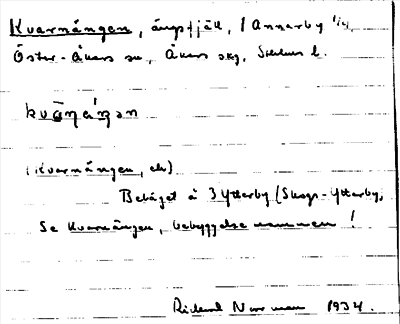 Kvarnängen, ängsfjäll, / Annarby
Öster-Åkers sn, Åkers skg, Sthlms l.
kvɑ̄ɳeŋən
(Kvarnängen, ek)
Beläget å 3 Ytterby (Skogs-Ytterby,
Se Kvarnängen, bebyggelsenamnen!
Rickard Norrman 1934.